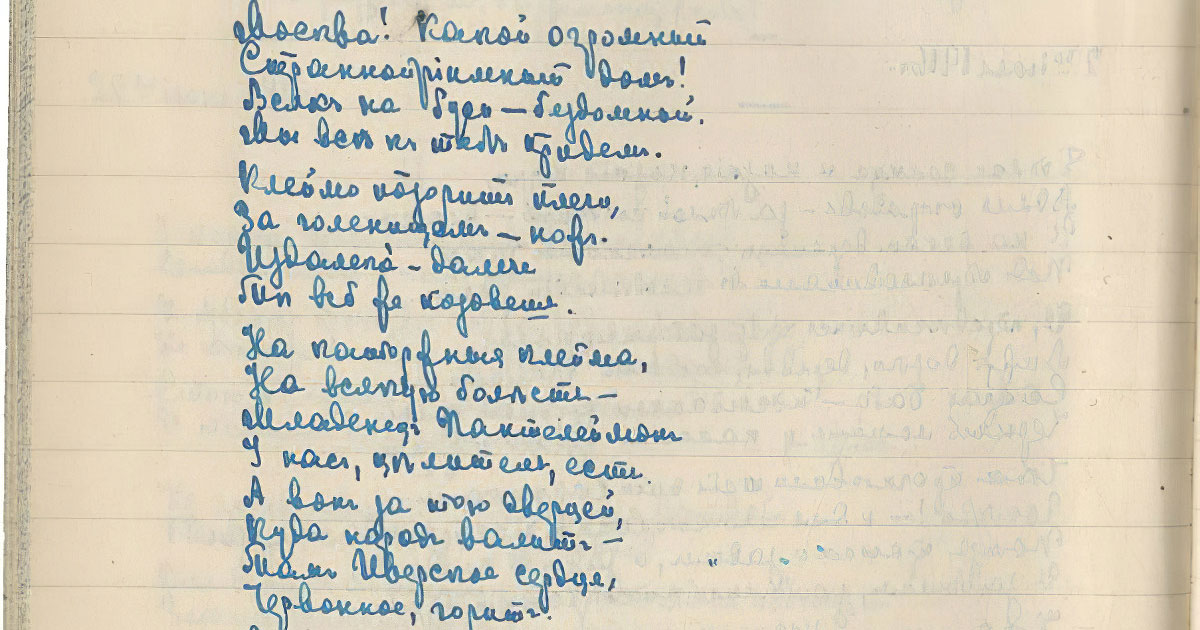 Москва! Какой огромный
Страннопріимный домъ!
Всякъ на Руси — бездомный.
Мы всѣ къ тебѣ придемъ.
Клеймо позоритъ плечи,
За голенищемъ — ножъ.
Издалека́ — далече
Ты всё же позовешь.
На каторжныя клейма,
На всякую болѣсть —
Младенецъ Пантелеймонъ
У насъ, цѣлитель, есть.
А вонъ за тою дверцей,
Куда народъ валитъ —
Тамъ Иверское сердце,
Червонное, горитъ.